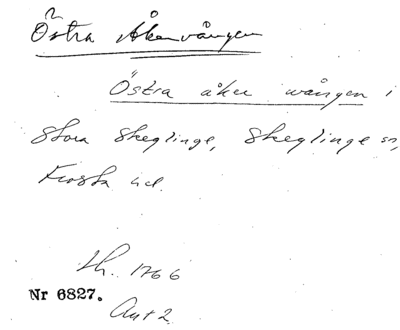 Östra Åkervången
Östra åker wången i
Stora Skeglinge, Skeglinge sn,
Frosta hd.
Lh. 1766
Nr 6827.
Akt 2.